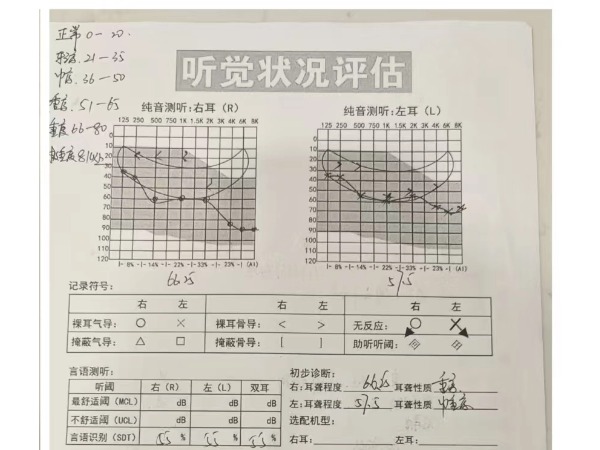 正常 0-20.
轻度.21-35
中度.36-50
51-65
重度66-80
听觉状况评估
纯音测听:右耳（R） 纯音测听:左耳（L）
125 250 500 750 1K 1.5K 2K 3K 4K 6K 8K 125 250 500 750 1K 1.5K 2K 3K 4K 6K 8K
0 0
10 10
20 20
30 30
40 40
50 50
60 60
70 70
80 80
90 90
100 100
110 110
120 120
-|- 8% -|- 14% -|- 22% -|- 33% -|- 23% -|- (AI) -|- 8% -|- 14% -|- 22% -|- 33% -|- 22% -|- (AI)
66.25 57.5
记录符号:
右 左 右 左 右 左
裸耳气导: ○ × 裸耳骨导: < > 无反应: ○ ×
掩蔽气导: △ □ 掩蔽骨导: [ ] 助听听阈:
言语测听: 初步诊断:
听阈 右（R） 左（L） 双耳 右:耳聋程度 66.25 耳聋性质 重度
最舒适阈(MCL) dB dB dB 左:耳聋程度 57.5 耳聋性质 中重度
不舒适阈(UCL) dB dB dB 选配机型:
言语识别(SDT) 55 % 55 % 55 % 右耳: 左耳: